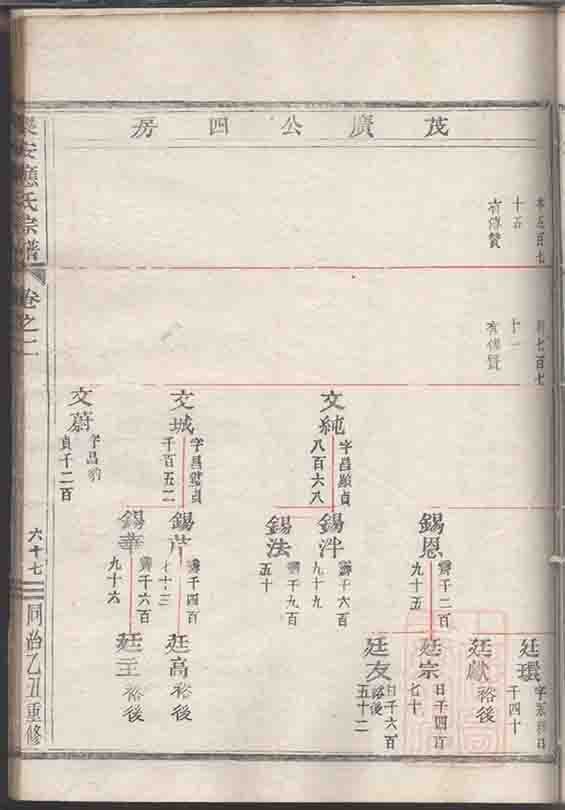 茂廣公四房
十五
有傳贊
七百七
十一
有傳贊
廷環
廷獻
裕後
錫恩
霽千二百
九十五
廷宗
日千四百
七十
廷友
日千六百
五十二
裕後
文純
字昌顯貞
八百六八
錫泮
霽千六百
九十九
錫法
霽千九百
五十
文城
字昌
貞
千百五二
錫芹
霽千四百
廷高
裕後
錫華
霽千六百
九十六
廷玉
裕後
文蔚
字昌豹
貞千二百
樂安應氏宗譜
卷之二
六十七
同治乙丑重修